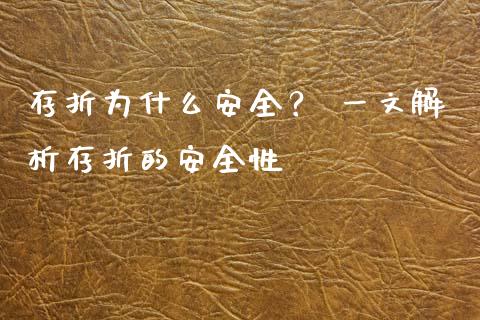 存折为什么安全？ 一文解
析存折的安全性